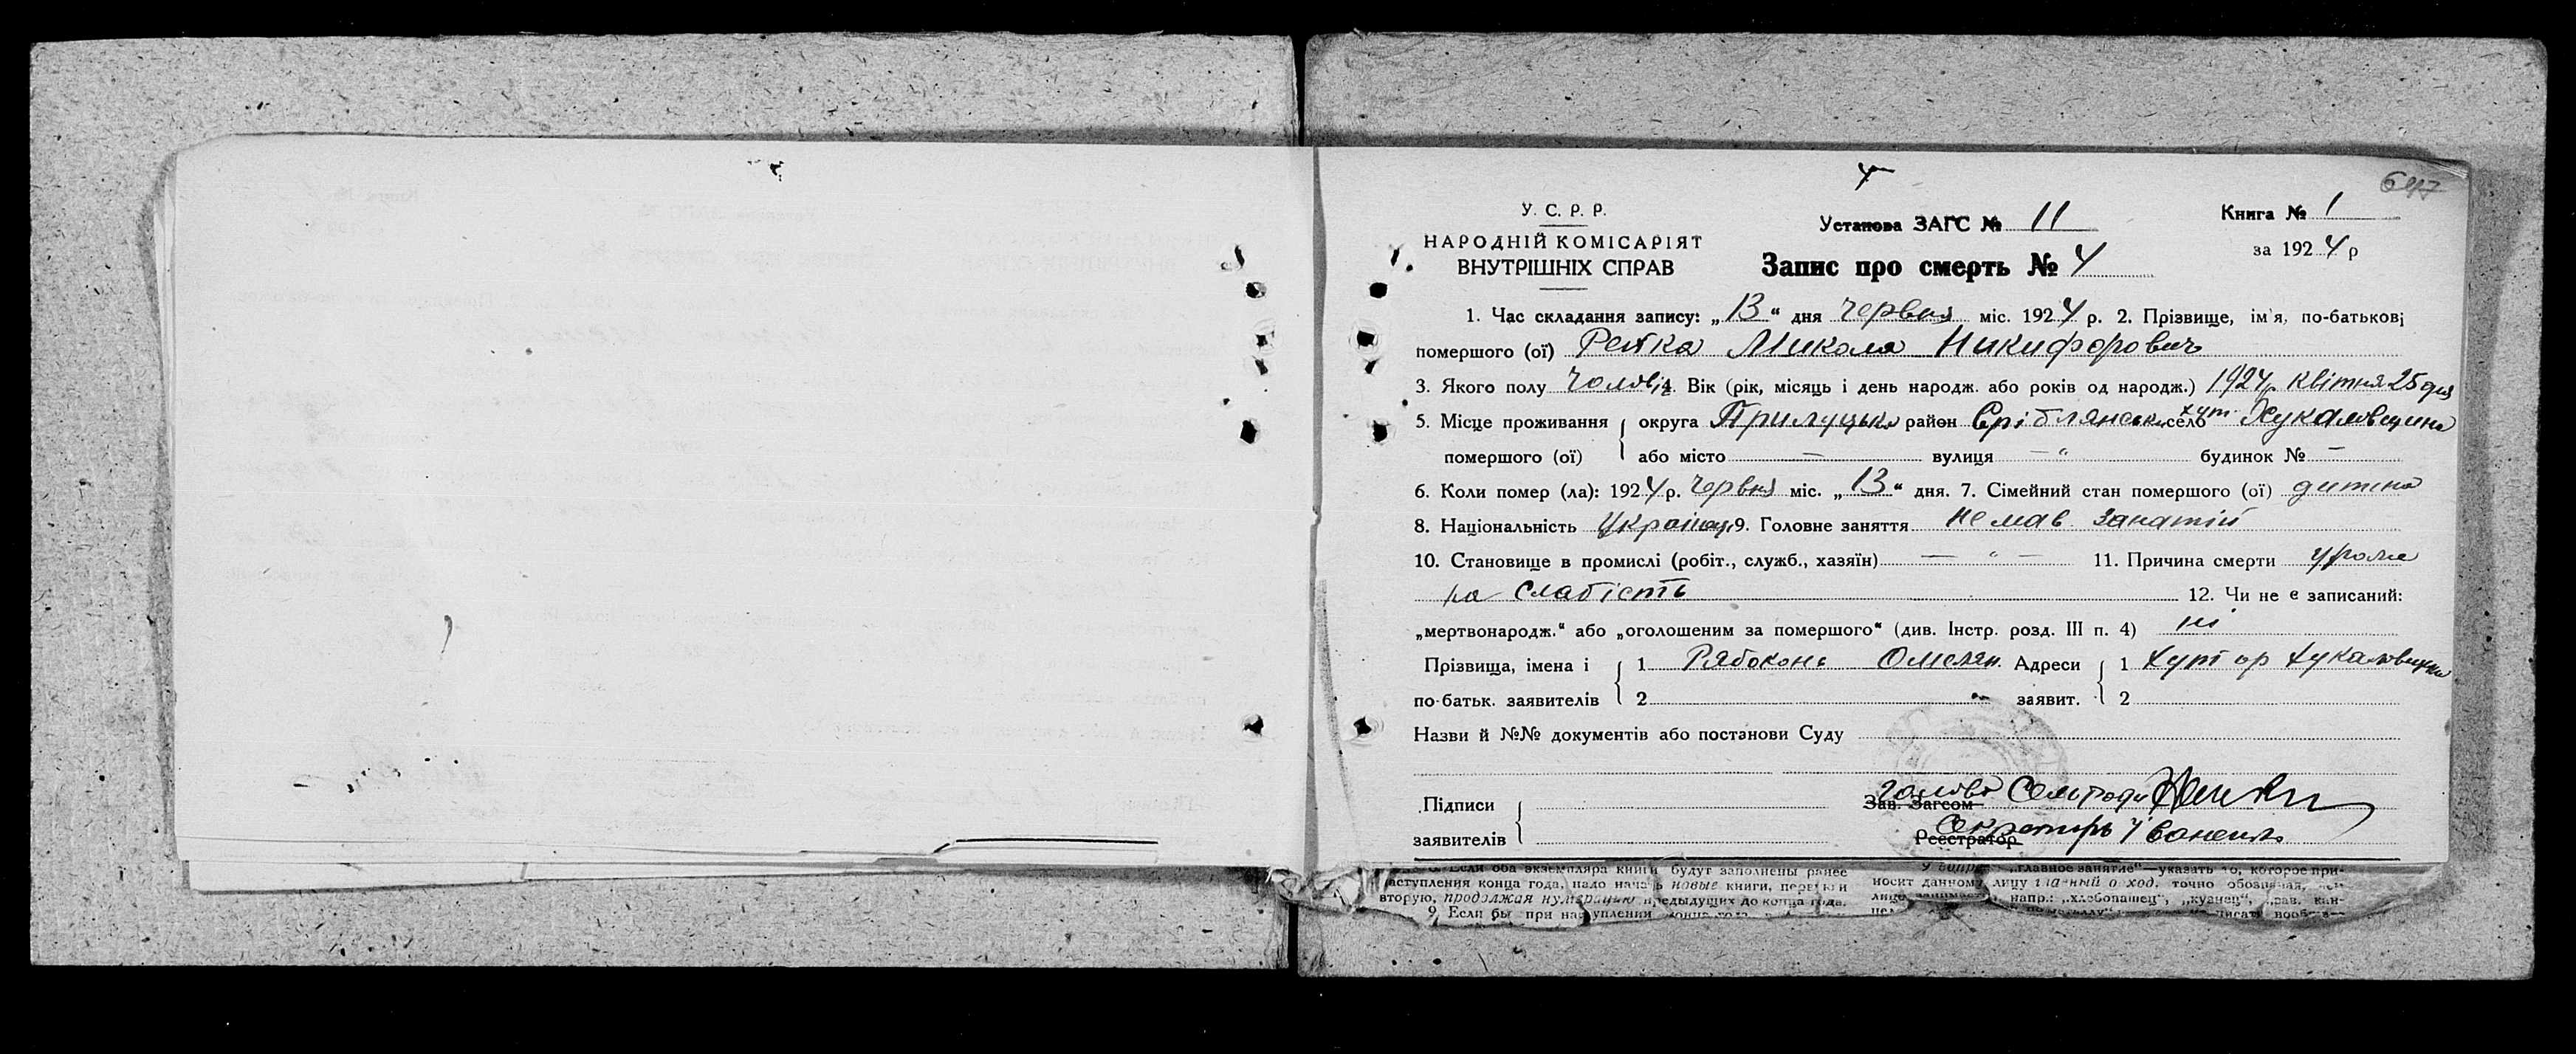 647
У. С. Р. Р.
НАРОДНІЙ КОМІСАРІЯТ
ВНУТРІШНІХ СПРАВ
Установа ЗАГС № 11
Книга № 1
за 1924 р
Запис про смерть № 4
1. Час складання запису: „13“ дня червня міс. 1924 р. 2. Прізвище, ім'я, по-батькові
помершого (ої) Репка Микола Никифорович
3. Якого полу чолові 4. Вік (рік, місяць і день народж. або років од народж.) 1924 р квітня 25 дня
5. Місце проживання округа Прилуцька район Сріблянськ село хут. Хукаловщина
помершого (ої) або місто — вулиця — " будинок № —
6. Коли помер (ла): 1924 р. червня міс. „13“ дня. 7. Сімейний стан помершого (ої) дитина
8. Національність Українец 9. Головне заняття не мав занатій
10. Становище в промислі (робіт., служб., хазяїн) — " — 11. Причина смерти
слабість 12. Чи не є записаний:
„мертвонародж.“ або „оголошеним за помершого“ (див. Інстр. розд. III п. 4) ні
Прізвища, імена і 1 Рябоконь Омелян Адреси 1 хутор Хукаловщина
по-батьк. заявителів 2 заявит. 2
Назви й №№ документів або постанови Суду
Підписи Зав. Загсом голова Сельради
заявителів Реєстратор Секретарь
8. Если оба экземпляра книги будут заполнены ранее
наступления конца года, надо начать новые книги, первую и
вторую, продолжая нумерацию предыдущих до конца года.
9. Если бы при наступлении конца года
„главное занятие“—указать то, которое при-
носит данному лицу главный доход, точно обозначая,
напр.: „хлебопашец“, „кузнец“, „зав. кан-